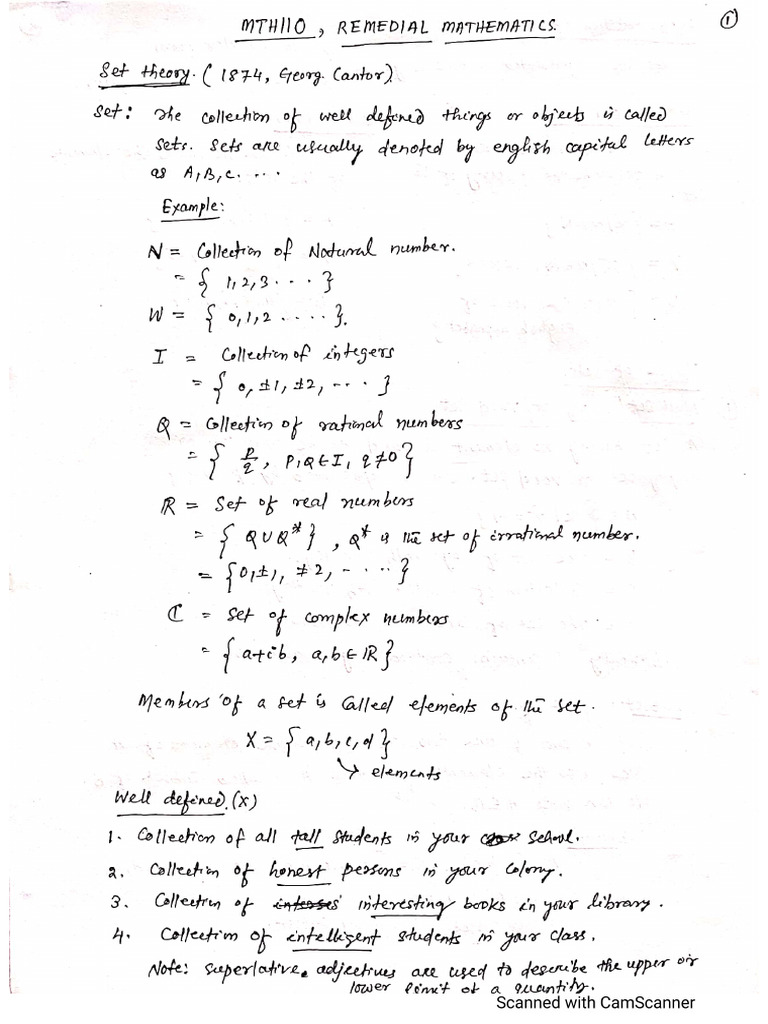 MTH110, REMEDIAL MATHEMATICS.
1
Set theory. (1874, Georg. Cantor).
Set: The collection of well defined things or objects is called
sets. Sets are usually denoted by english capital letters
as A, B, C. ...
Example:
N = Collection of Natural number.
= { 1, 2, 3 . . . }
W = { 0, 1, 2 . . . . . }.
I = Collection of integers
= { 0, ±1, ±2, - . . . }
Q = Collection of rational numbers
= { p/q, p, Q ∈ I, q ≠ 0 }
R = Set of real numbers
= { Q ∪ Q* }, Q* is the set of irrational number.
= { 0, ±1, ±2, - . . . . }
C = Set of complex numbers
= { a+ib, a, b ∈ R }
Members of a set is called elements of the set.
X = { a, b, c, d }
↘ elements
Well defined. (X)
1. Collection of all tall students in your school.
2. Collection of honest persons in your colony.
3. Collection of interesting books in your library.
4. Collection of intelligent students in your class.
Note: superlative adjectives are used to describe the upper or
lower limit of a quantity.
Scanned with CamScanner